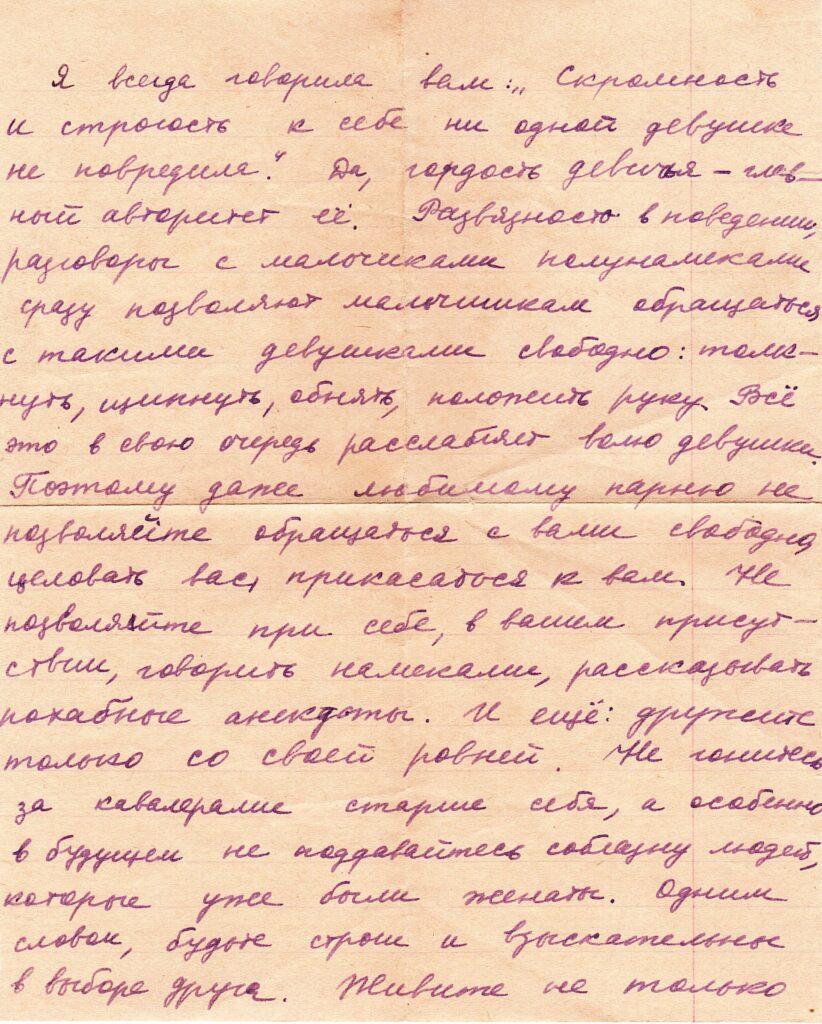 Я всегда говорила вам: „Скромность
и строгость к себе ни одной девушке
не повредила." Да, гордость девичья – глав–
ный авторитет её. Развязность в поведении,
разговоры с мальчиками полунамеками
сразу позволяют мальчишкам обращаться
с такими девушками свободно: толк–
нуть, щипнуть, обнять, положить руку. Всё
это в свою очередь расслабляет волю девушки.
Поэтому даже любимому парню не
позволяйте обращаться с вами свободно,
целовать вас, прикасаться к вам. Не
позволяйте при себе, в вашем присут–
ствии, говорить намеками, рассказывать
похабные анекдоты. И ещё: дружите
только со своей ровней. Не гонитесь
за кавалерами старше себя, а особенно
в будущем не поддавайтесь соблазну людей,
которые уже были женаты. Одним
словом, будьте строги и взыскательны
в выборе друга. Живите не только